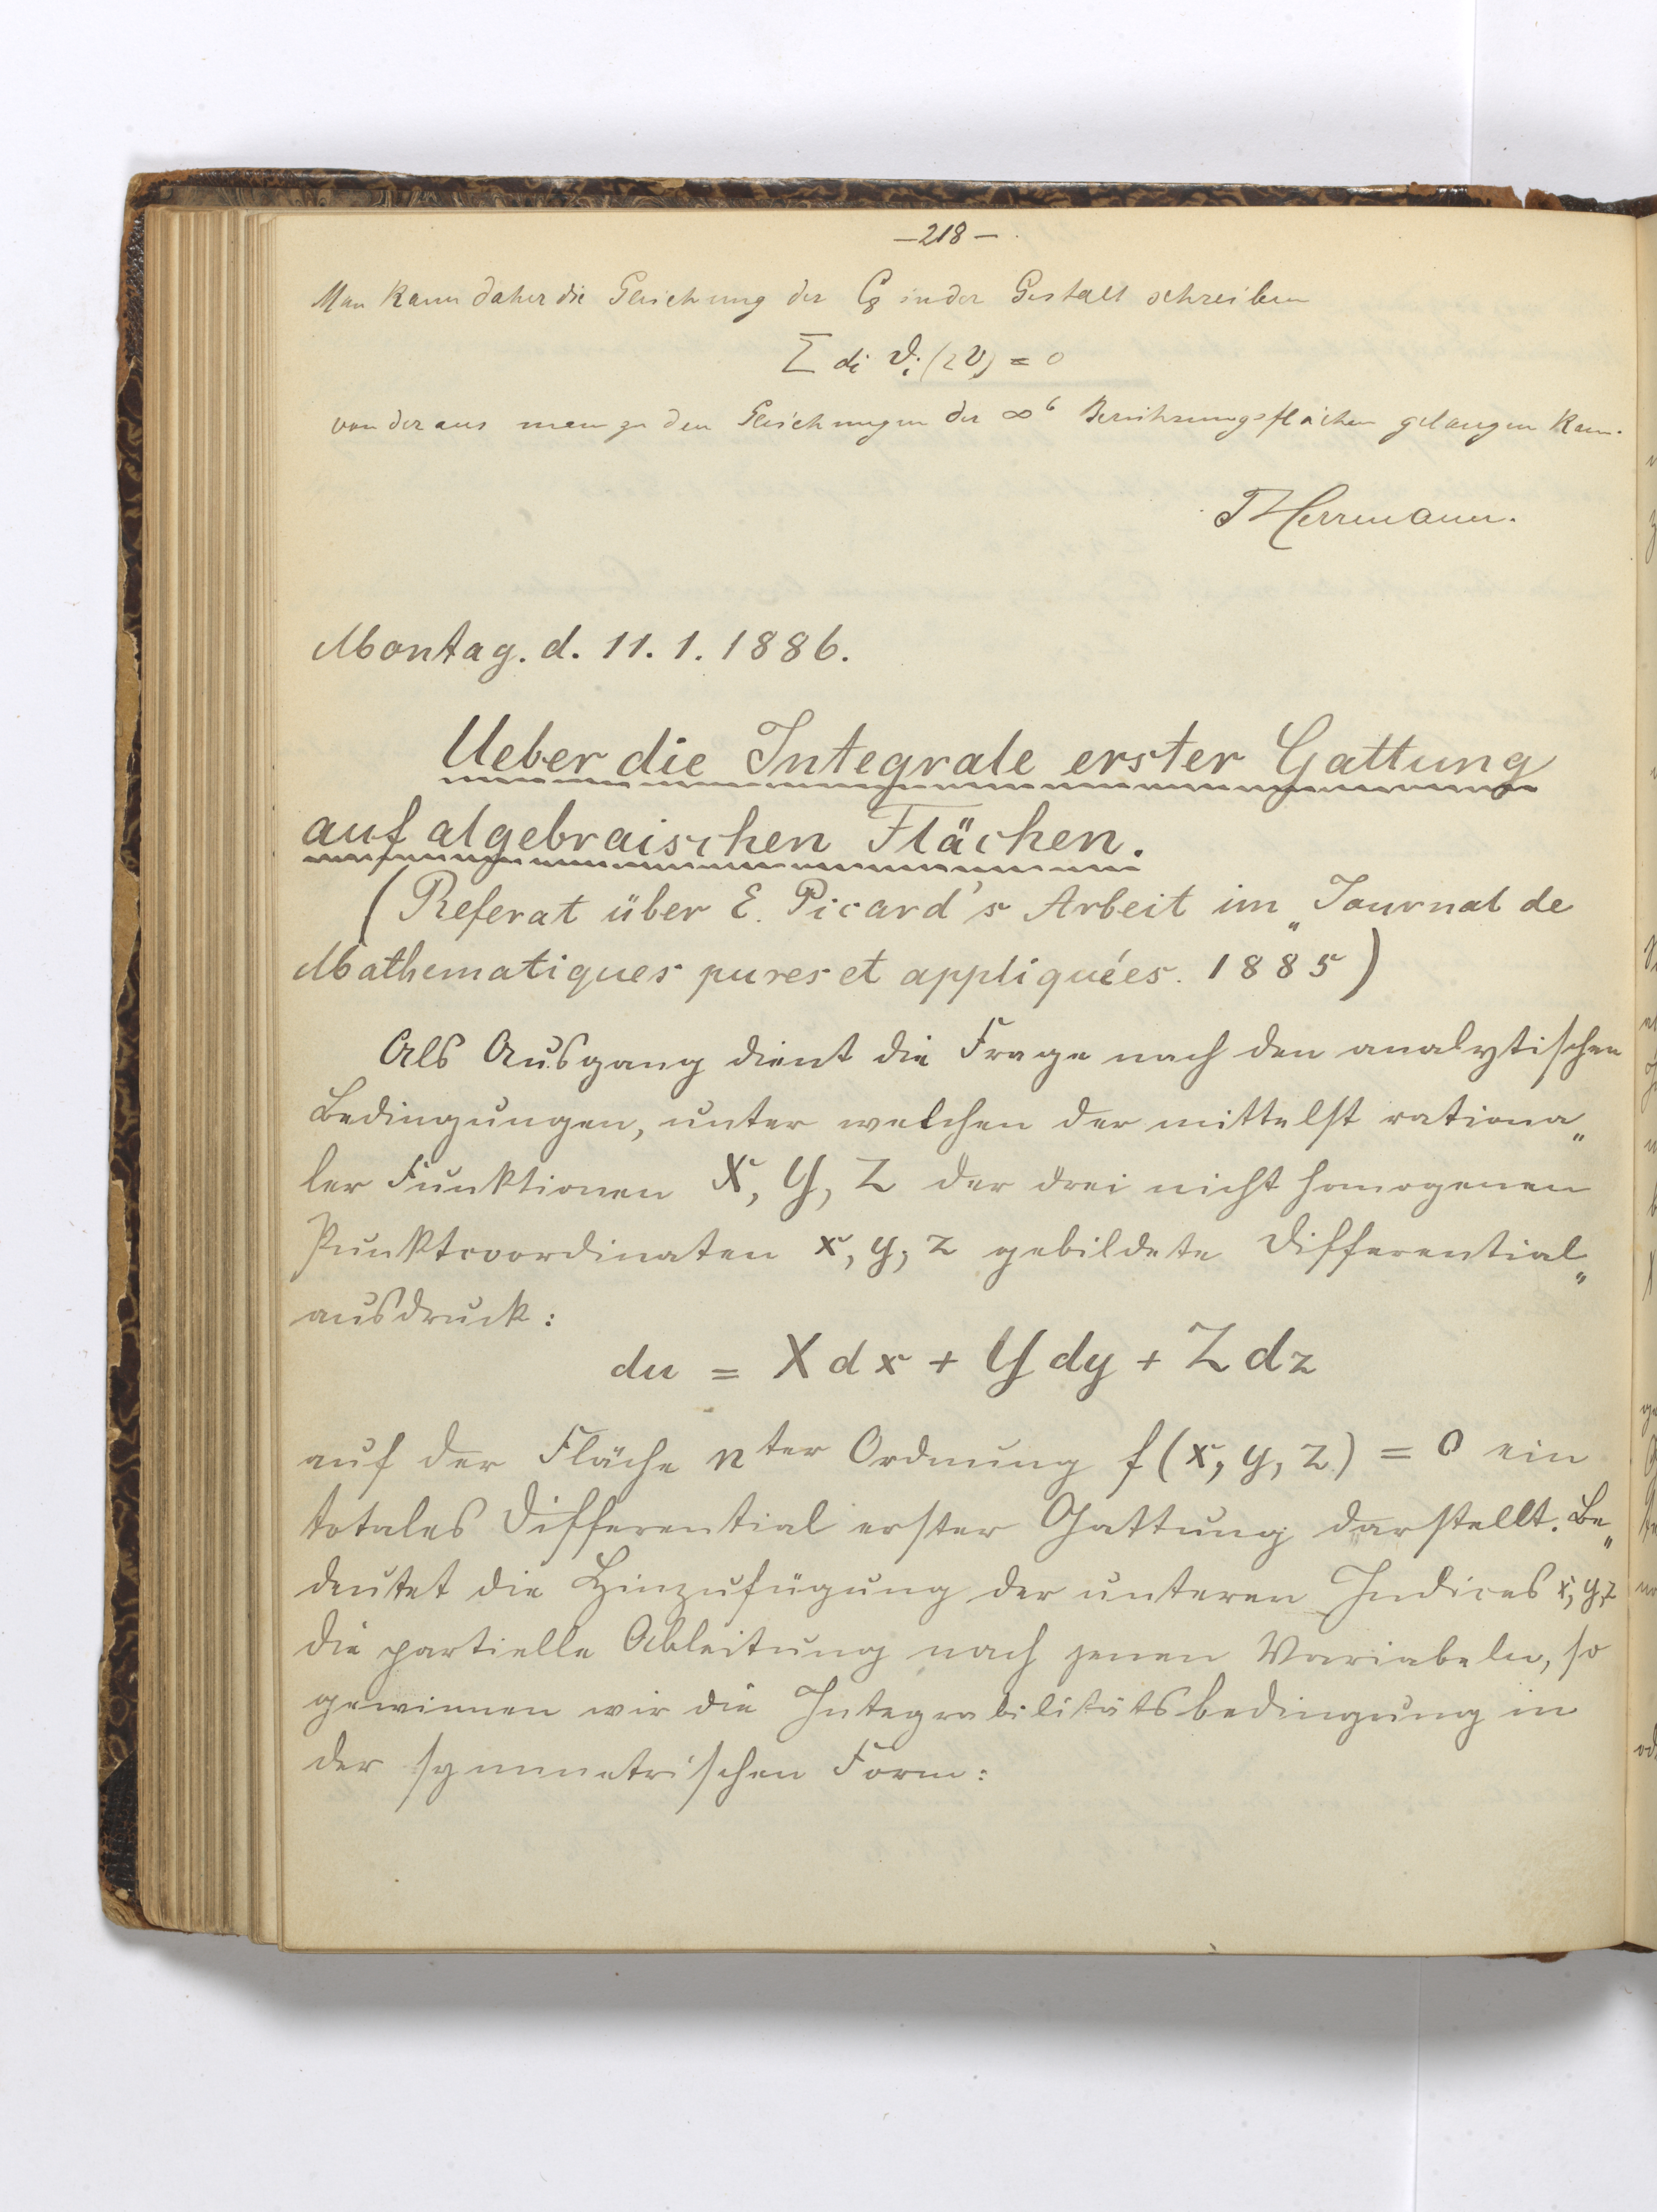 —218—
Man kann daher die Gleichung der C₈ in der Gestalt schreiben
Σ di ϑi (2v) = 0
von der aus man zu den Gleichungen der ∞⁶ Berührungsflächen gelangen kann.
Herrmann.
Montag. d. 11. 1. 1886.
Ueber die Integrale erster Gattung
auf algebraischen Flächen.
(Referat über E. Picard's Arbeit im „Journal de
Mathematiques pures et appliquées. 1885)
Als Ausgang dient die Frage nach den analytischen
Bedingungen, unter welchen der mittelst rationa„
ler Funktionen X, Y, Z der drei nicht homogenen
Punktcoordinaten x, y, z gebildete Differential„
ausdruck:
du = X dx + Y dy + Z dz
auf der Fläche nter Ordnung f(x, y, z) = 0 ein
totales Differential erster Gattung darstellt. Be„
deutet die Hinzufügung der unteren Indices x, y, z
die partielle Ableitung nach jenen Variabeln, so
gewinnen wir die Integrabilitätsbedingung in
der symmetrischen Form: